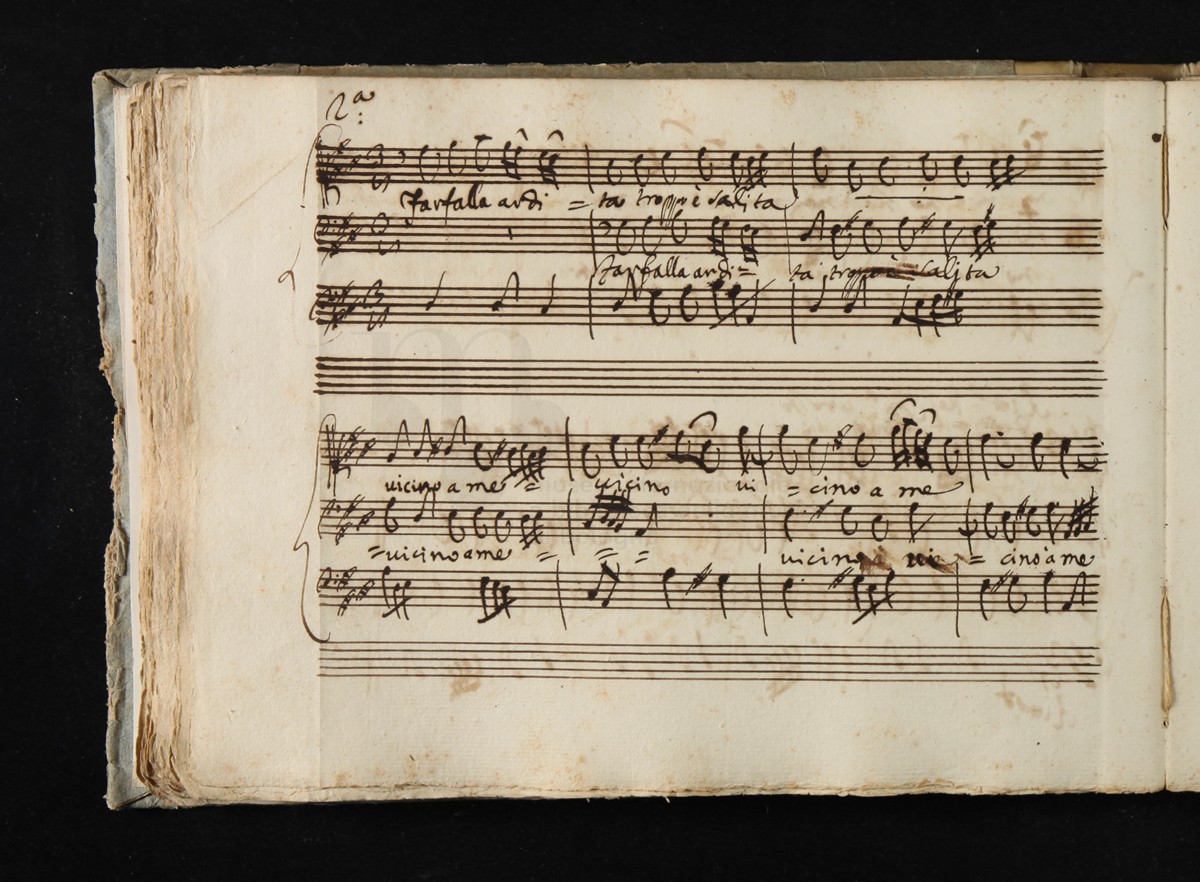 2.a
Farfalla ardi = ta tropp'è salita
Farfalla ardi = ta tropp'è salita
vicino a me = vicino vi = cino a me
= vicino a me = = = vicino vi = cino a me